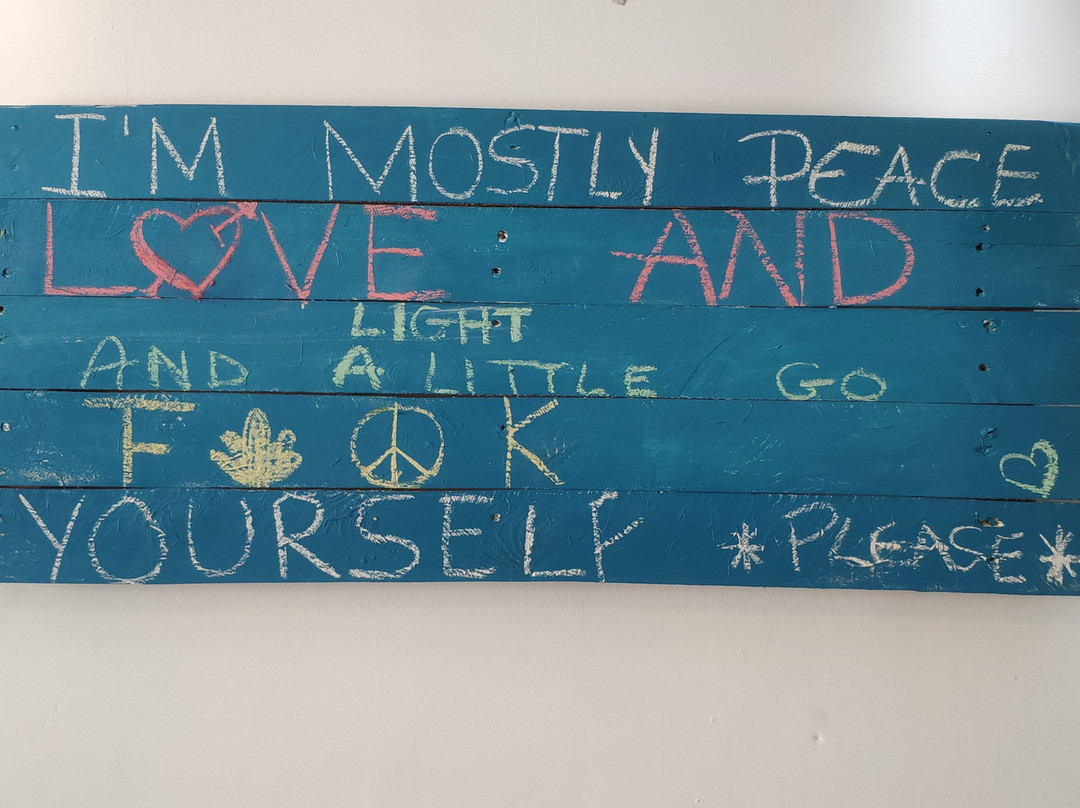 I'M MOSTLY PEACE
L♡VE AND
LIGHT
AND A LITTLE GO
F☮K
YOURSELF *PLEASE*